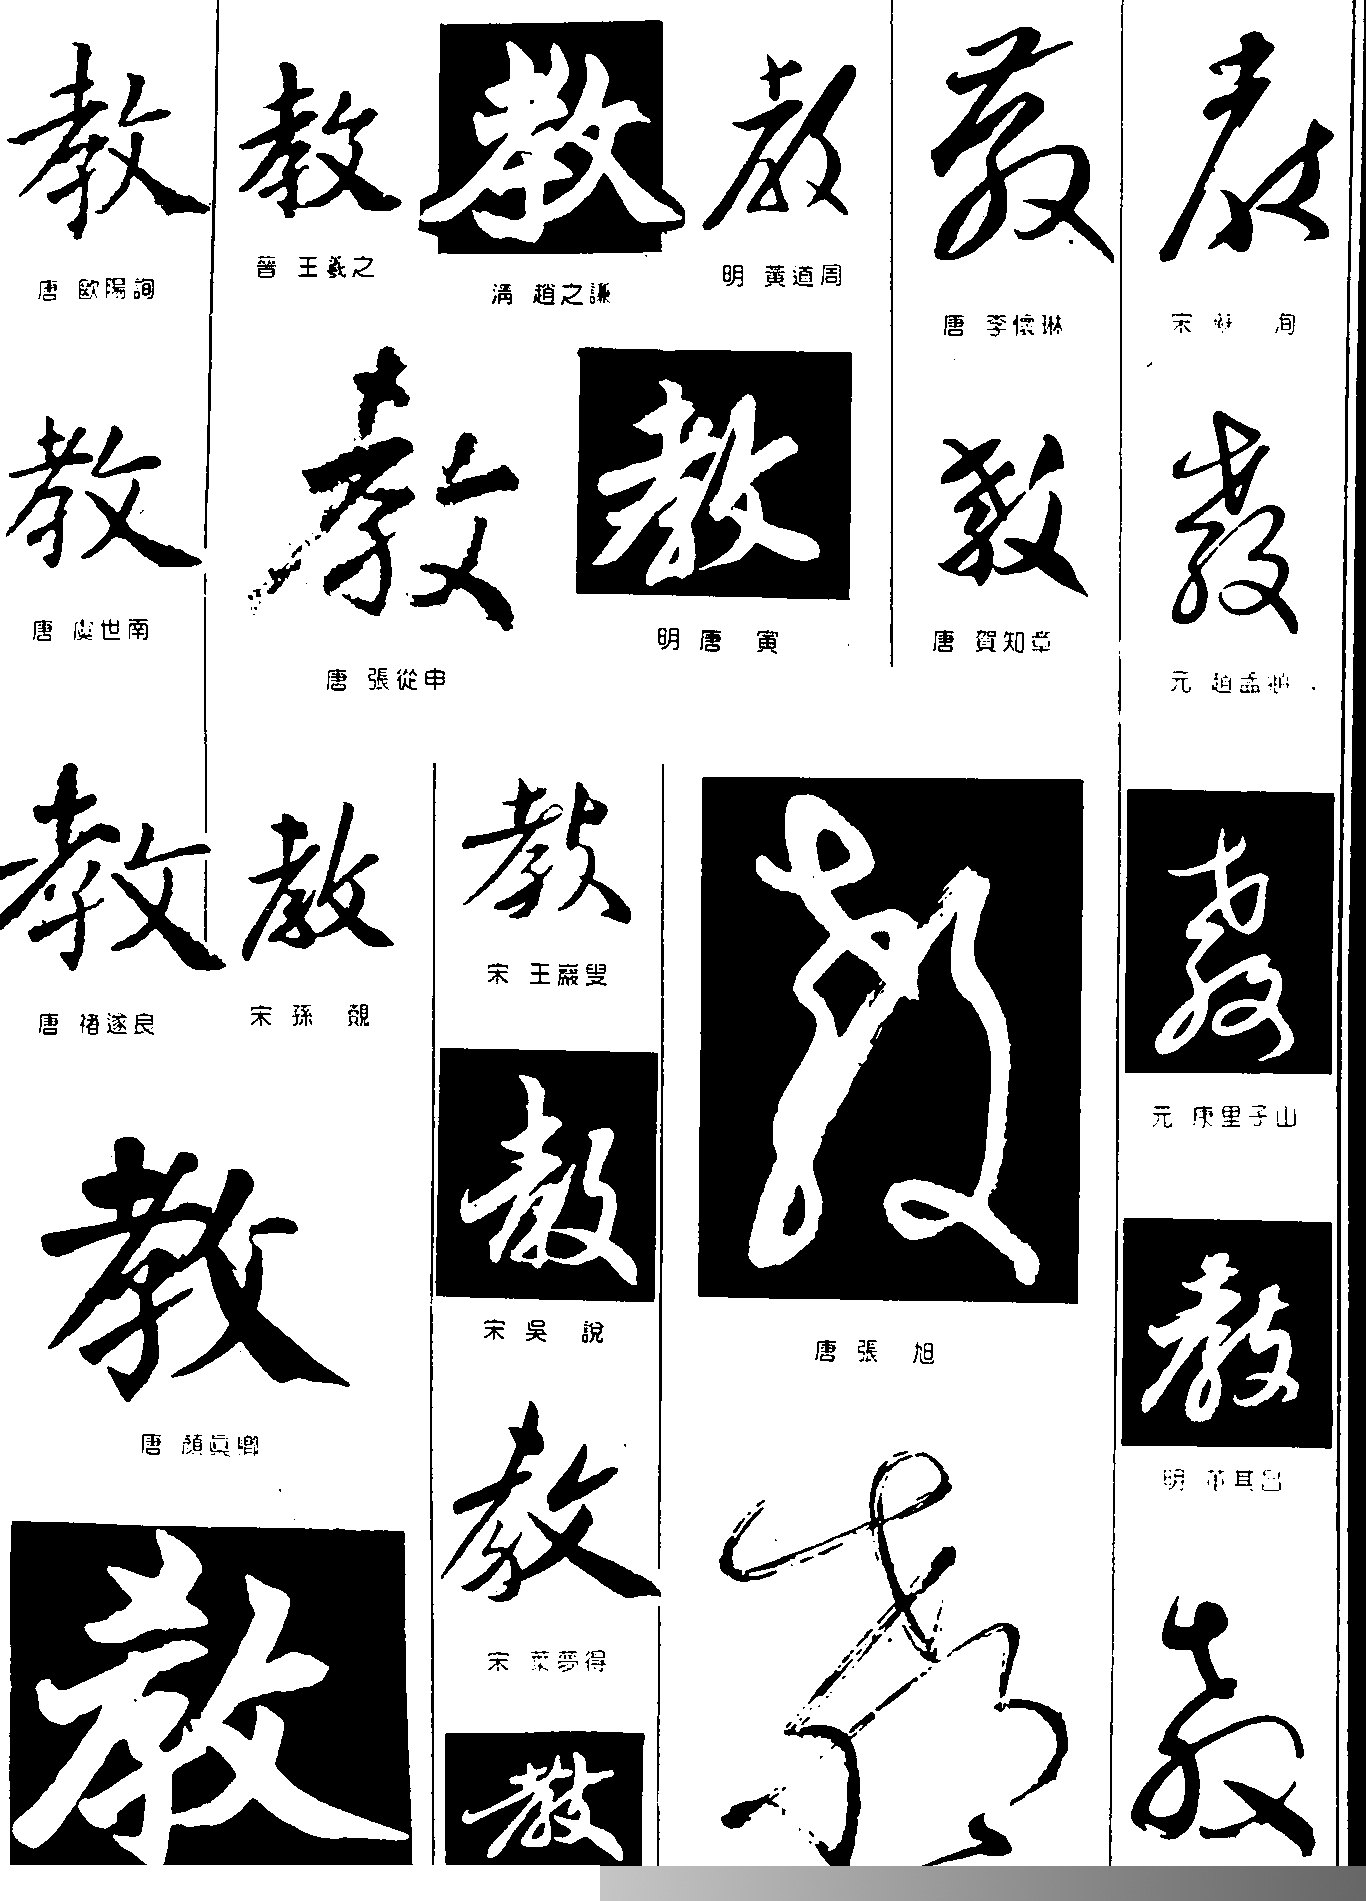 教 教 教 教 教 教
唐 歐陽詢
晉 王羲之
清 趙之謙
明 黃道周
唐 李懷琳
宋 洵
教 教 教 教 教
唐 虞世南
唐 張從申
明 唐 寅
唐 賀知章
元 趙孟頫
教 教 教 教 教
唐 褚遂良
宋 孫 覿
宋 王巖叟
唐 張 旭
元 康里子山
教 教 教
唐 顏真卿
宋 吳 說
明 董其昌
教 教 教 教
宋 葉夢得
教